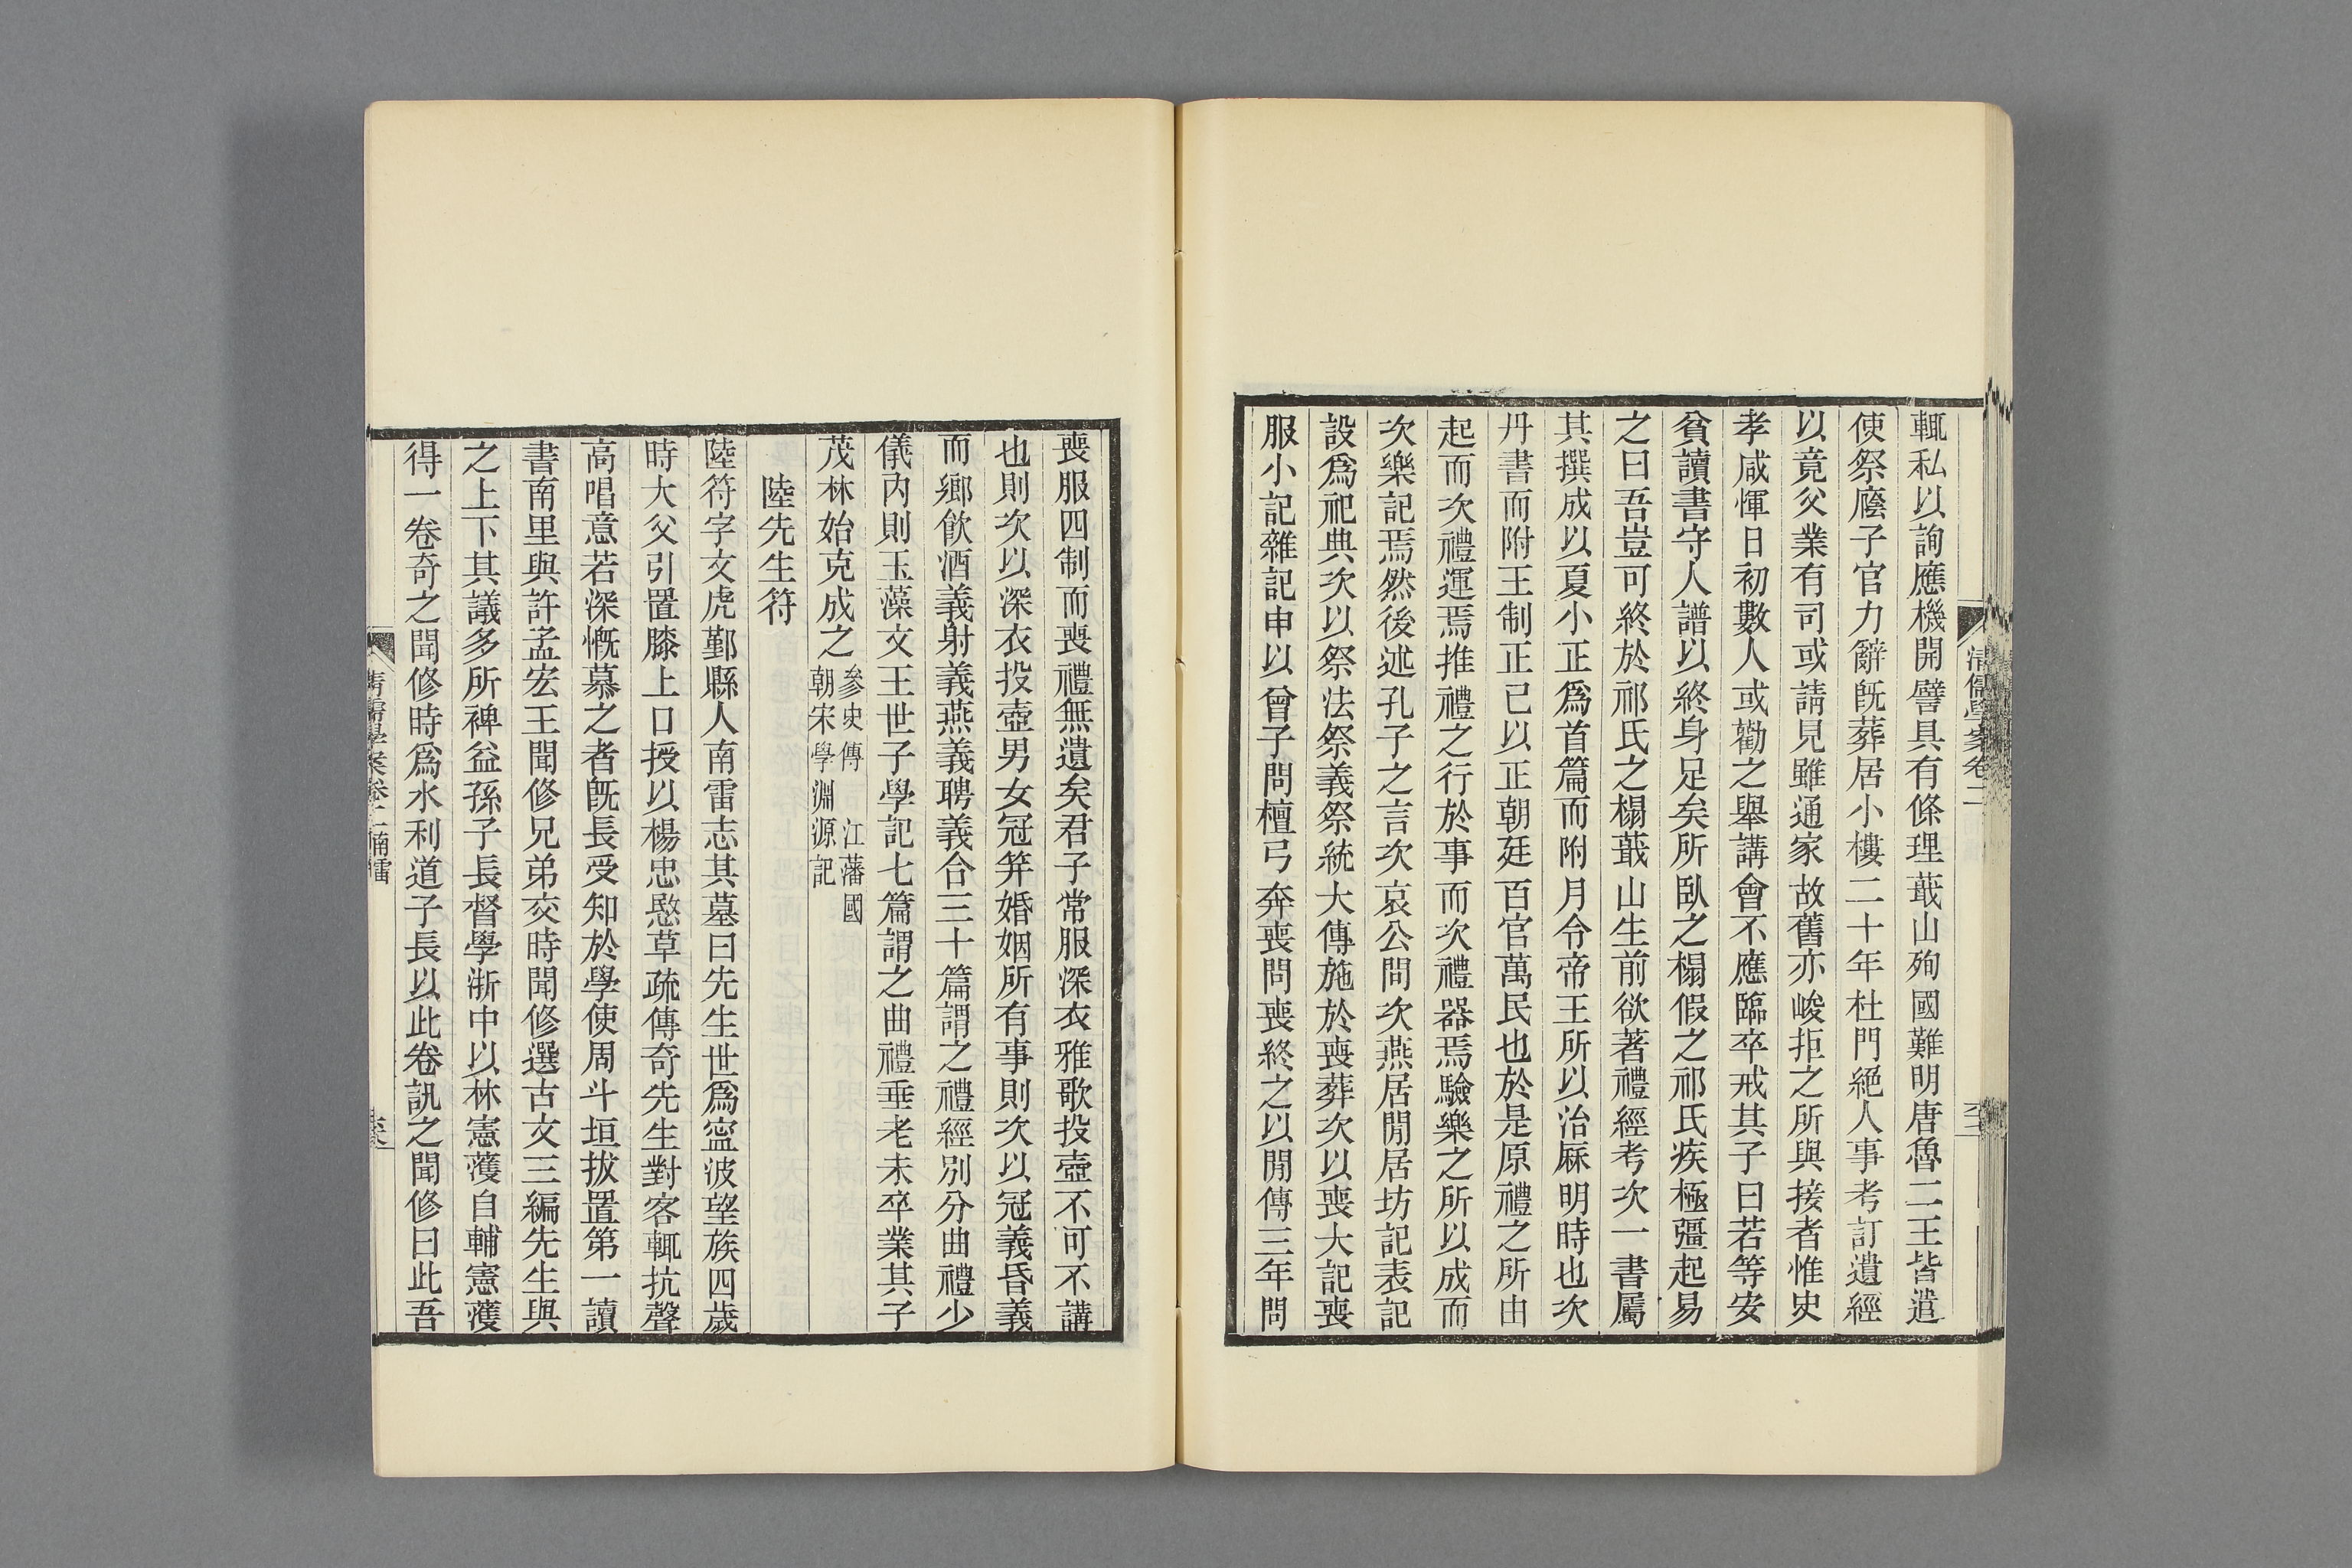 輒私以詢應機開譬具有條理蕺山殉國難明唐魯二王皆遣
使祭廕子官力辭旣葬居小樓二十年杜門絕人事考訂遺經
以竟父業有司或請見雖通家故舊亦峻拒之所與接者惟史
孝咸惲日初數人或勸之舉講會不應臨卒戒其子曰若等安
貧讀書守人譜以終身足矣所臥之榻假之祁氏疾極彊起易
之曰吾豈可終於祁氏之榻蕺山生前欲著禮經考次一書屬
其撰成以夏小正爲首篇而附月令帝王所以治厤明時也次
丹書而附王制正己以正朝廷百官萬民也於是原禮之所由
起而次禮運焉推禮之行於事而次禮器焉驗樂之所以成而
次樂記焉然後述孔子之言次哀公問次燕居閒居坊記表記
設爲祀典次以祭法祭義祭統大傳施於喪葬次以喪大記喪
服小記雜記申以曾子問檀弓奔喪問喪終之以閒傳三年問
清儒學案卷二
喪服四制而喪禮無遺矣君子常服深衣雅歌投壺不可不講
也則次以深衣投壺男女冠笄婚姻所有事則次以冠義昏義
而鄉飮酒義射義燕義聘義合三十篇謂之禮經別分曲禮少
儀內則玉藻文王世子學記七篇謂之曲禮垂老未卒業其子
茂林始克成之參史傳　江藩國
朝宋學淵源記
陸先生符
陸符字文虎鄞縣人南雷志其墓曰先生世爲寍波望族四歲
時大父引置膝上口授以楊忠愍草疏傳奇先生對客輒抗聲
高唱意若深慨慕之者旣長受知於學使周斗垣拔置第一讀
書南里與許孟宏王聞修兄弟交時聞修選古文三編先生與
之上下其議多所裨益孫子長督學浙中以林憲蒦自輔憲蒦
得一卷奇之聞修時爲水利道子長以此卷訊之聞修曰此吾
清儒學案卷二南雷